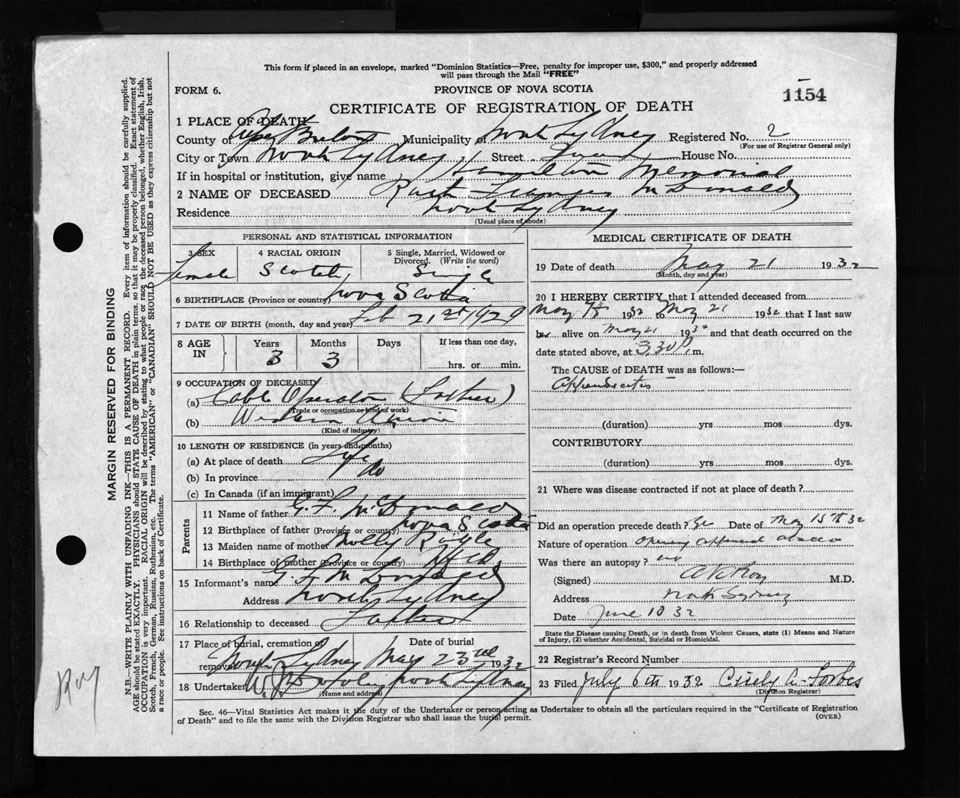 This form if placed in an envelope, marked "Dominion Statistics—Free, penalty for improper use, $300," and properly addressed
will pass through the Mail "FREE"
FORM 6.
PROVINCE OF NOVA SCOTIA
1154
CERTIFICATE OF REGISTRATION OF DEATH
1 PLACE OF DEATH
County of Cape Breton Municipality of North Sydney Registered No. 2
(For use of Registrar General only)
City or Town North Sydney Street House No.
If in hospital or institution, give name Hamilton Memorial
2 NAME OF DECEASED Ruth Frances McDonald
Residence North Sydney
(Usual place of abode)
PERSONAL AND STATISTICAL INFORMATION
3 SEX 4 RACIAL ORIGIN 5 Single, Married, Widowed or
Divorced. (Write the word)
Female Scotch Single
6 BIRTHPLACE (Province or country) Nova Scotia
7 DATE OF BIRTH (month, day and year) Feb 21st 1929
8 AGE IN Years Months Days If less than one day,
3 3 hrs. or min.
9 OCCUPATION OF DECEASED
(a) Cable Operator (Father)
(Trade or occupation or kind of work)
(b) Western Union
(Kind of industry)
10 LENGTH OF RESIDENCE (in years and months)
(a) At place of death Life
(b) In province do
(c) In Canada (if an immigrant)
Parents
11 Name of father G. F. McDonald
12 Birthplace of father (Province or country) Nova Scotia
13 Maiden name of mother Molly
14 Birthplace of mother (Province or country) Nfld.
15 Informant's name G F McDonald
Address North Sydney
16 Relationship to deceased Father
17 Place of burial, cremation or Date of burial
removal North Sydney May 23rd 1932
18 Undertaker North Sydney
(name and address)
MEDICAL CERTIFICATE OF DEATH
19 Date of death May 21 1932
(Month, day and year)
20 I HEREBY CERTIFY that I attended deceased from
May 1932 May 21 1932 that I last saw
her alive on May 21 1932 and that death occurred on the
date stated above, at 3.30 P m.
The CAUSE of DEATH was as follows:—
Appendicitis
(duration) yrs mos dys.
CONTRIBUTORY
(duration) yrs mos dys.
21 Where was disease contracted if not at place of death?
Did an operation precede death? Yes Date of May 15th 32
Nature of operation Opening appendix abscess
Was there an autopsy? no
(Signed) M.D.
Address North Sydney
Date June 10 32
State the Disease causing Death, or in death from Violent Causes, state (1) Means and
Nature of Injury, (2) whether Accidental, Suicidal or Homicidal.
22 Registrar's Record Number
23 Filed July 6th 1932 Cicely A. Forbes
(Division Registrar)
Sec. 46—Vital Statistics Act makes it the duty of the Undertaker or person acting as Undertaker to obtain all the particulars required in the "Certificate of Registration
of Death" and to file the same with the Division Registrar who shall issue the burial permit. (OVER)
MARGIN RESERVED FOR BINDING
N.B.—WRITE PLAINLY WITH UNFADING INK—THIS IS A PERMANENT RECORD. Every item of information should be carefully supplied.
AGE should be stated EXACTLY. PHYSICIANS should STATE CAUSE OF DEATH in plain terms, so that it may be properly classified. Exact statement of
OCCUPATION is very important. RACIAL ORIGIN will be described by stating to what people or race the deceased person belonged, whether English, Irish,
Scotch, French, German, Russian, Ruthenian, etc. The terms "AMERICAN" or "CANADIAN" SHOULD NOT BE USED as they express citizenship but not
a race or people. See instructions on back of Certificate.